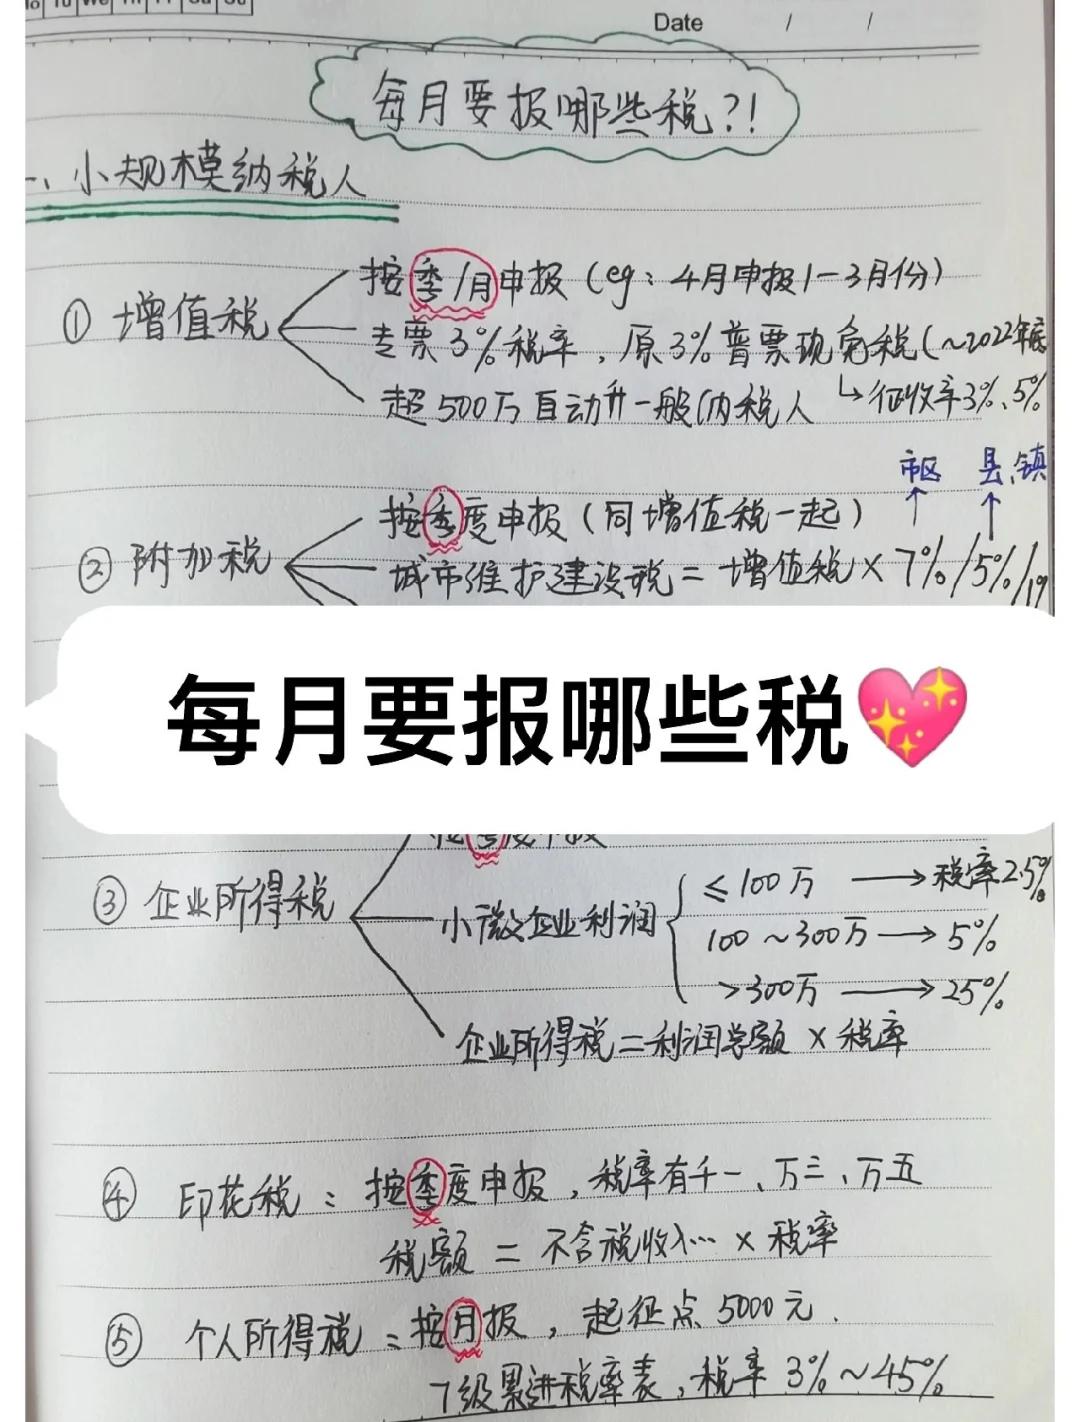 Mo Tu We Th Fr Sa Su
Date / /
每月要报哪些税?!
一、小规模纳税人
① 增值税
按季/月申报（eg：4月申报1-3月份）
专票3%税率，原3%普票现免税（~2022年底
↳征收率3%、5%
超500万自动升一般纳税人
市区 县、镇
② 附加税
按季度申报（同增值税一起）
城市维护建设税 = 增值税 × 7%/5%/1%
每月要报哪些税💖
按季度申报
③ 企业所得税
小微企业利润
≤100万 → 税率2.5%
100~300万 → 5%
>300万 → 25%
企业所得税=利润总额 × 税率
④ 印花税：按季度申报，税率有千一、万三、万五
税额 = 不含税收入… × 税率
⑤ 个人所得税：按月报，起征点5000元.
7级累进税率表，税率3%~45%